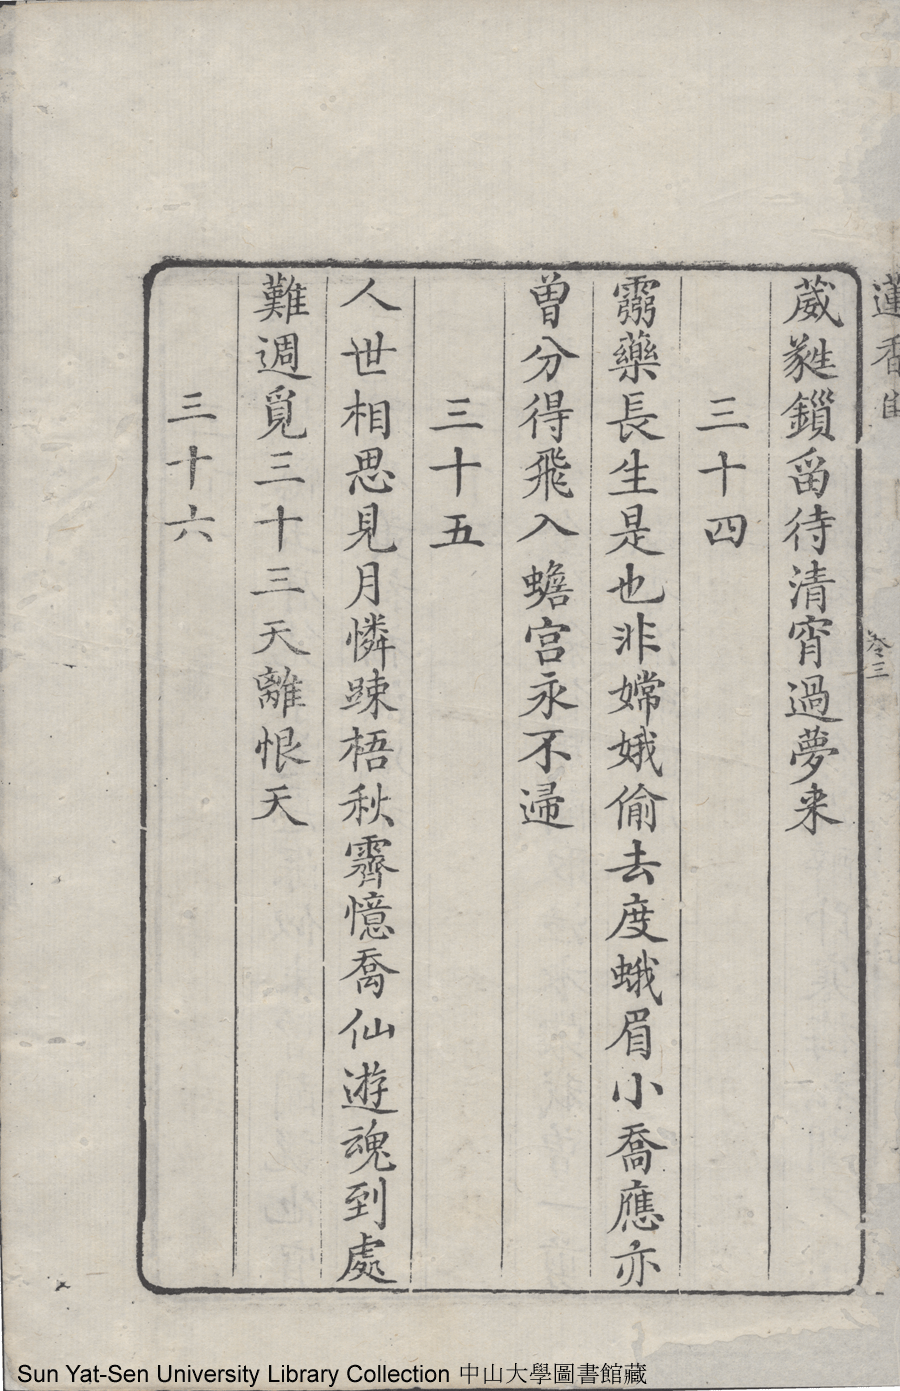 蓮香
卷三
葳蕤鎖畱待清宵過夢来
三十四
靈藥長生是也非嫦娥偷去度蛾眉小喬應亦
曽分得飛入蟾宫永不歸
三十五
人世相思見月憐踈梧秋霽憶喬仙遊魂到處
難週覓三十三天離恨天
三十六
Sun Yat-Sen University Library Collection 中山大學圖書館藏